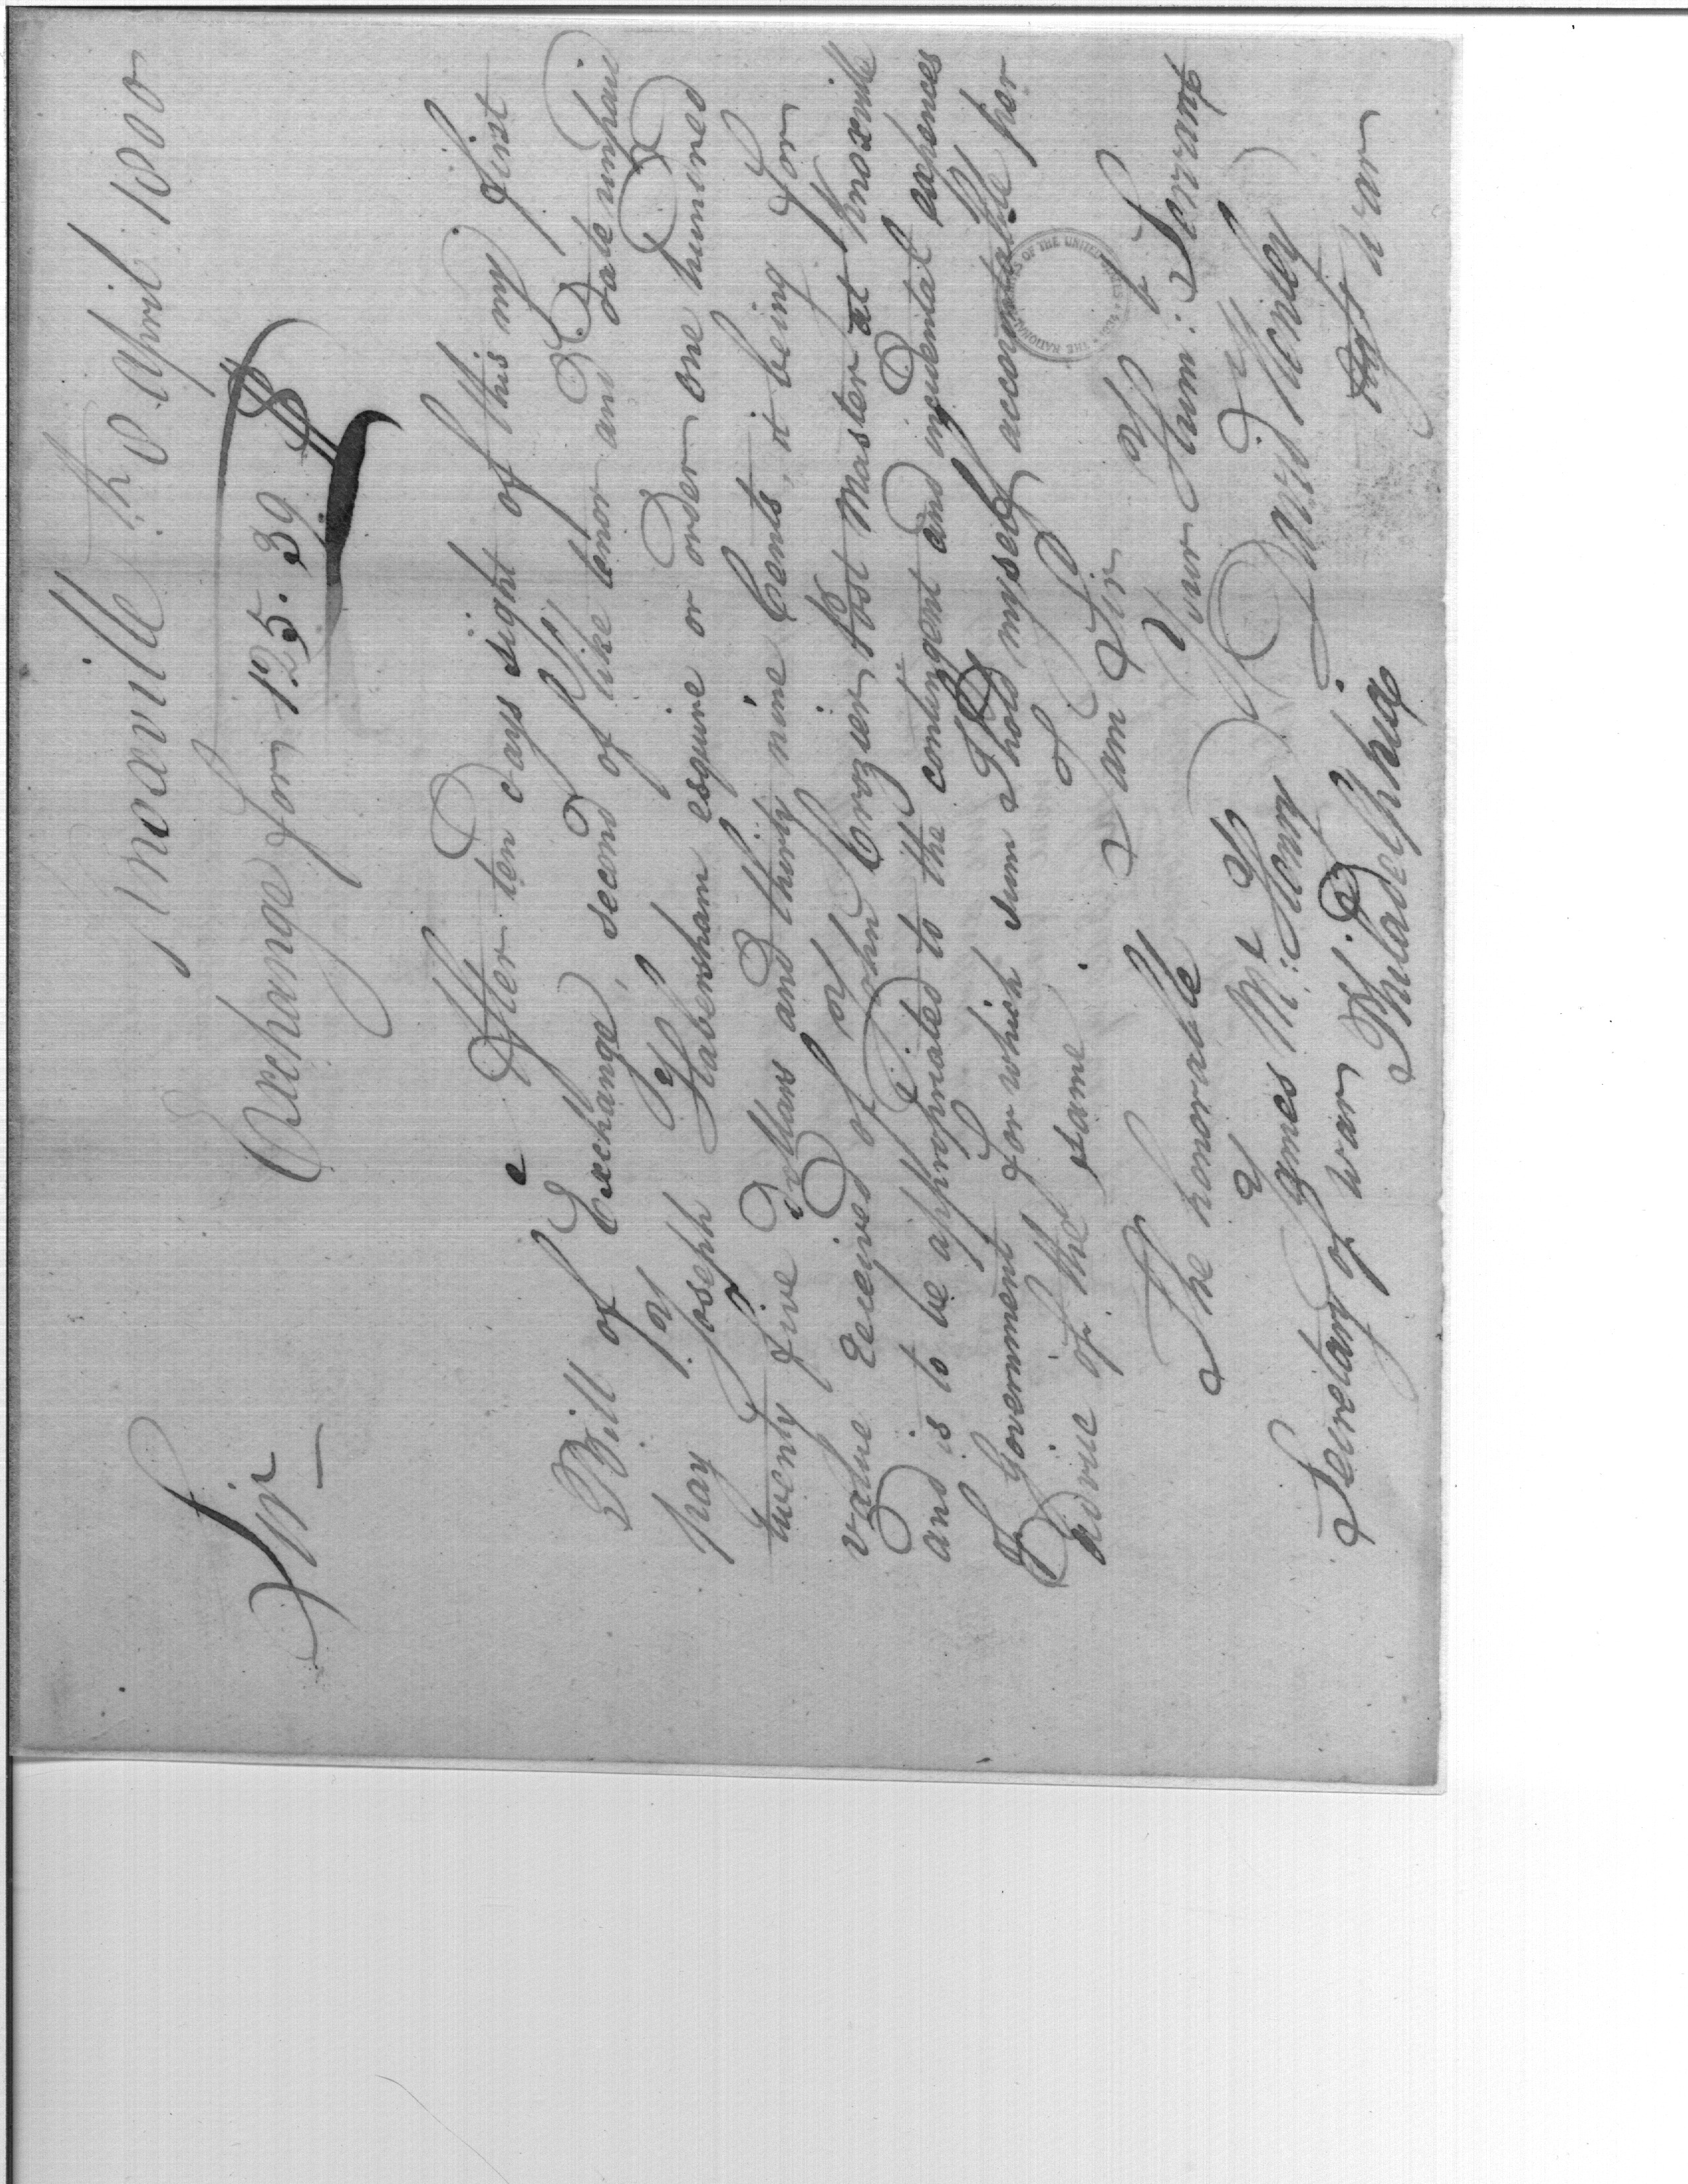 Knoxville 8th April 1800
Exchange for 125.39 $
Sir
After ten days sight of this my first
Bill of Exchange, second of like tenor and date unpaid
pay Joseph Habersham esquire or order one hundred
twenty five Dollars and thirty nine Cents, it being for
value received of John Crozier Post Master at Knoxville
and is to be appropriated to the contingent and incidental expences
of Government for which sum I hold myself accountable per
advice of the same
I am Sir
Your Hum: Servant
The honorable
James Mc:Henry
David Henley
Secretary of War
Agt War
Philadelphia
THE NATIONAL OF THE UNITED